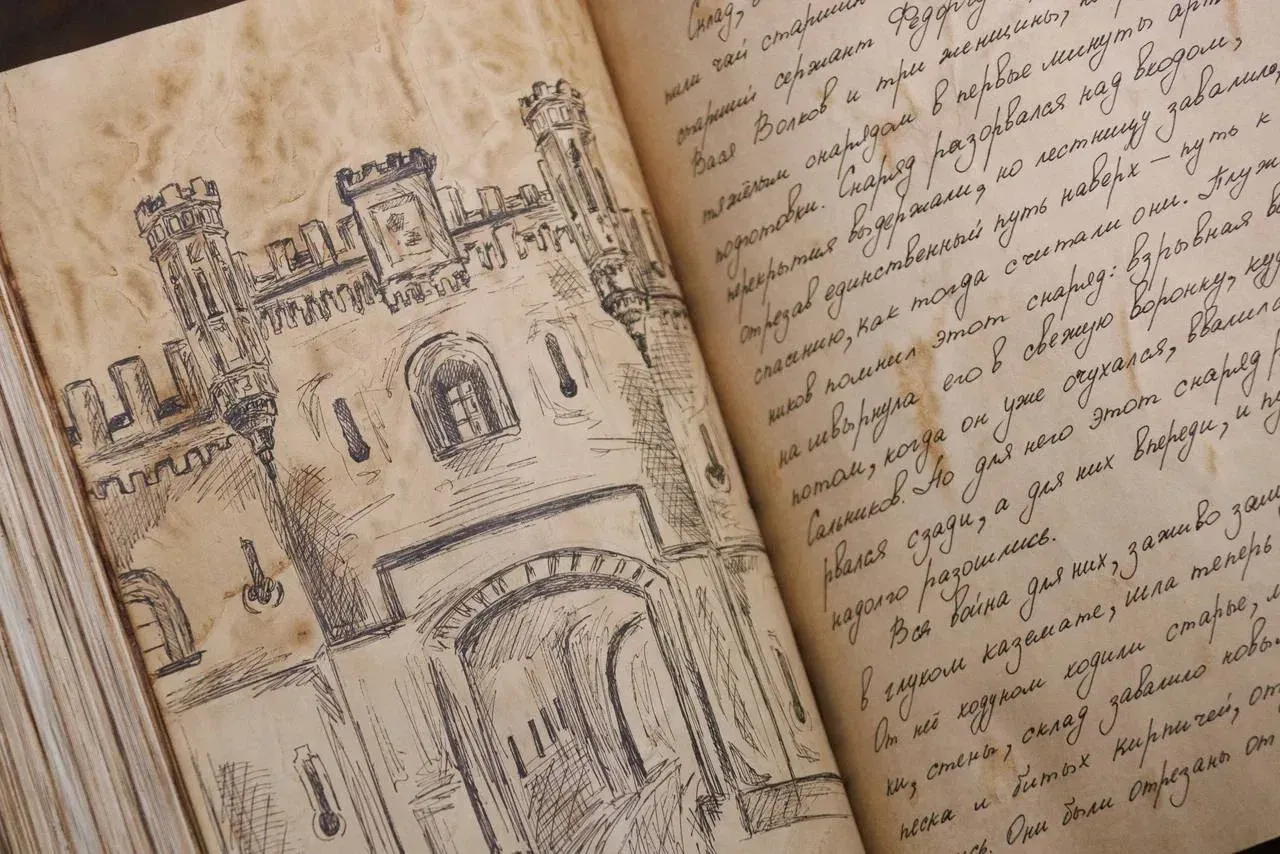 Склад,
пили чай старшин
старший сержант Федорчу
Вася Волков и три женщины, к
тяжёлым снарядом в первые минуты арт
подготовки. Снаряд разорвался над входом,
перекрытия выдержали, но лестницу завалило,
отрезав единственный путь наверх — путь к
спасению, как тогда считали они. Плуж
ников помнил этот снаряд: взрывная в
на швырнула его в свежую воронку, куд
потом, когда он уже очухался, ввалилс
Сальников. Но для него этот снаряд р
рвался сзади, а для них впереди, и пу
надолго разошлись.
Вся война для них, заживо зам
в глухом каземате, шла теперь
От неё ходуном ходили старые, м
ки, стены, склад завалило новы
песка и битых кирпичей, от
сь. Они были отрезаны от